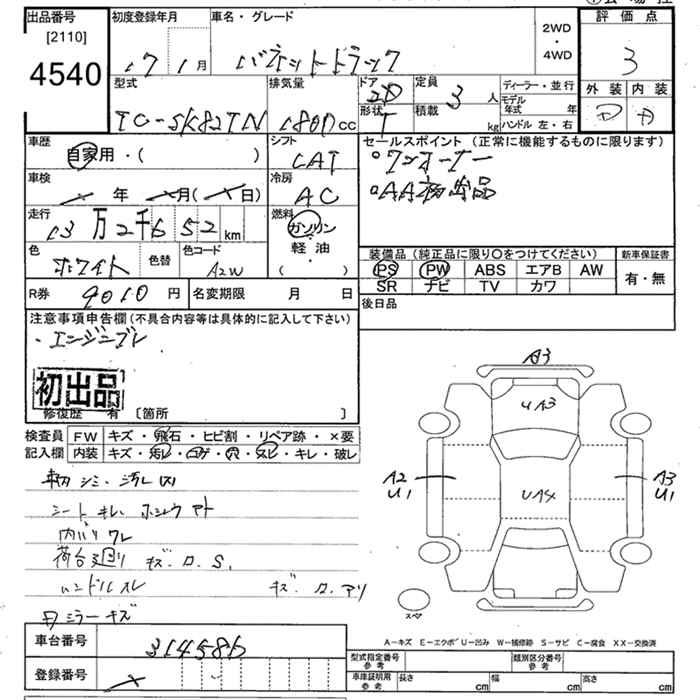 出品番号
[2110]
4540
初度登録年月
17 1 月
車名・グレード
バネットトラック
2WD
・
4WD
評価点
3
外装 内装
D D
型式
TC-SK82TN
排気量
1800 cc
ドア
2D
形状
T
定員
3 人
積載
kg
ディーラー・並行
モデル年式 年
ハンドル 左・右
車歴
自家用・( )
シフト
CAT
セールスポイント (正常に機能するものに限ります)
○ワンオーナー
○AA初出品
車検
年 月( 日)
冷房
AC
走行
13万2千652 km
燃料
ガソリン
・
軽油
( )
色
ホワイト
色替
色コード
A2W
装備品 (純正品に限り○をつけてください)
新車保証書
PS PW ABS エアB AW
有・無
SR ナビ TV カワ
R券 9010 円
名変期限 月 日
後日品
注意事項申告欄(不具合内容等は具体的に記入して下さい)
・エンジンブレ
初出品
修復歴 有 [箇所 ]
検査員 FW キズ・飛石・ヒビ割・リペア跡・×要
記入欄 内装 キズ・汚レ・コゲ・穴・スレ・キレ・破レ
シミ・汚レ 大
シート キレ ホシュウアト
内バリ ワレ
荷台廻リ キズ.ロ.S.
ハンドルスレ キズ.ロ.アリ
ミラーキズ
A3
UA3
A2
U1
A3
U1
UA4
スペア
A-キズ E-エクボ U-凹み W-補修跡 S-サビ C-腐食 XX-交換済
車台番号 314586
登録番号
型式指定番号
参考
類別区分番号
参考
車庫証明用
参考
長さ cm 幅 cm 高さ cm